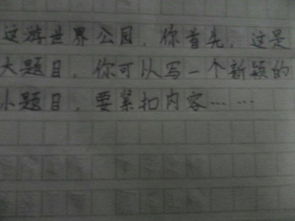 这游世界公园，你首先，这是
大题目，你可以写一个新颖的
小题目，要紧扣内容……